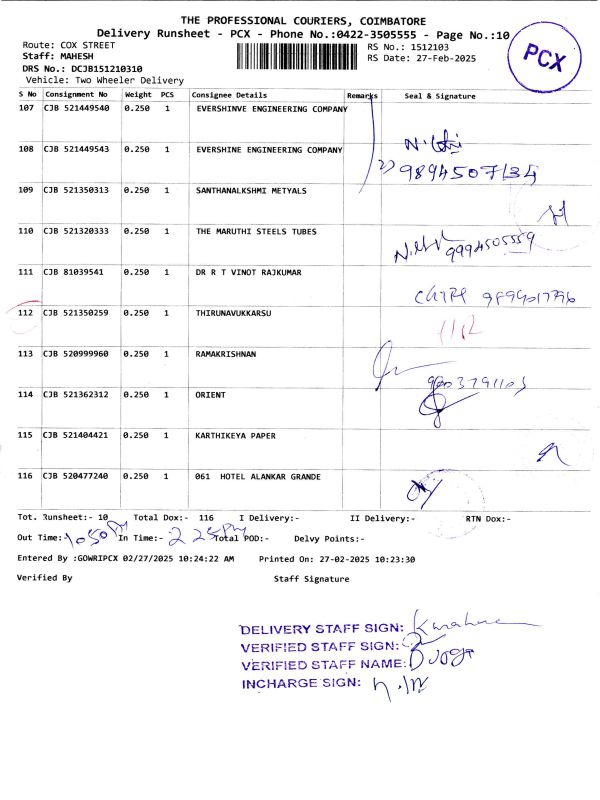 THE PROFESSIONAL COURIERS, COIMBATORE
Delivery Runsheet - PCX - Phone No.:0422-3505555 - Page No.:10
Route: COX STREET RS No.: 1512103
Staff: MAHESH RS Date: 27-Feb-2025
DRS No.: DCJB151210310
Vehicle: Two Wheeler Delivery
PCX
S No Consignment No Weight PCS Consignee Details Remarks Seal & Signature
107 CJB 521449540 0.250 1 EVERSHINVE ENGINEERING COMPANY
108 CJB 521449543 0.250 1 EVERSHINE ENGINEERING COMPANY
2) 9894507134
109 CJB 521350313 0.250 1 SANTHANALKSHMI METYALS
110 CJB 521320333 0.250 1 THE MARUTHI STEELS TUBES
9994505559
111 CJB 81039541 0.250 1 DR R T VINOT RAJKUMAR
112 CJB 521350259 0.250 1 THIRUNAVUKKARSU
113 CJB 520999960 0.250 1 RAMAKRISHNAN
114 CJB 521362312 0.250 1 ORIENT
115 CJB 521404421 0.250 1 KARTHIKEYA PAPER
116 CJB 520477240 0.250 1 061 HOTEL ALANKAR GRANDE
Tot. Runsheet:- 10 Total Dox:- 116 I Delivery:- II Delivery:- RTN Dox:-
Out Time:- In Time:- Total POD:- Delvy Points:-
Entered By :GOWRIPCX 02/27/2025 10:24:22 AM Printed On: 27-02-2025 10:23:30
Verified By Staff Signature
DELIVERY STAFF SIGN:
VERIFIED STAFF SIGN:
VERIFIED STAFF NAME:
INCHARGE SIGN: